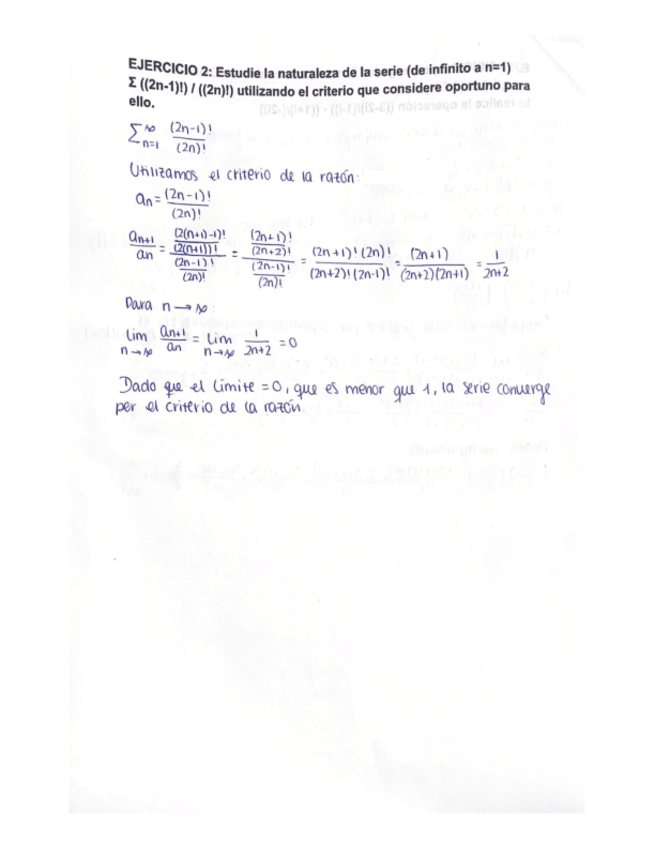 EJERCICIO 2: Estudie la naturaleza de la serie (de infinito a n=1)
Σ ((2n-1)!) / ((2n)!) utilizando el criterio que considere oportuno para
ello.
∑_{n=1}^{∞} (2n-1)! / (2n)!
Utilizamos el criterio de la razón:
an = (2n-1)! / (2n)!
an+1 / an = ((2(n+1)-1)! / (2(n+1))!) / ((2n-1)! / (2n)!) = ((2n+1)! / (2n+2)!) / ((2n-1)! / (2n)!) = (2n+1)! (2n)! / (2n+2)! (2n-1)! = (2n+1) / (2n+2)(2n+1) = 1 / 2n+2
Para n → ∞:
lim n→∞ an+1 / an = lim n→∞ 1 / 2n+2 = 0
Dado que el límite = 0, que es menor que 1, la serie converge
per el criterio de la razón.